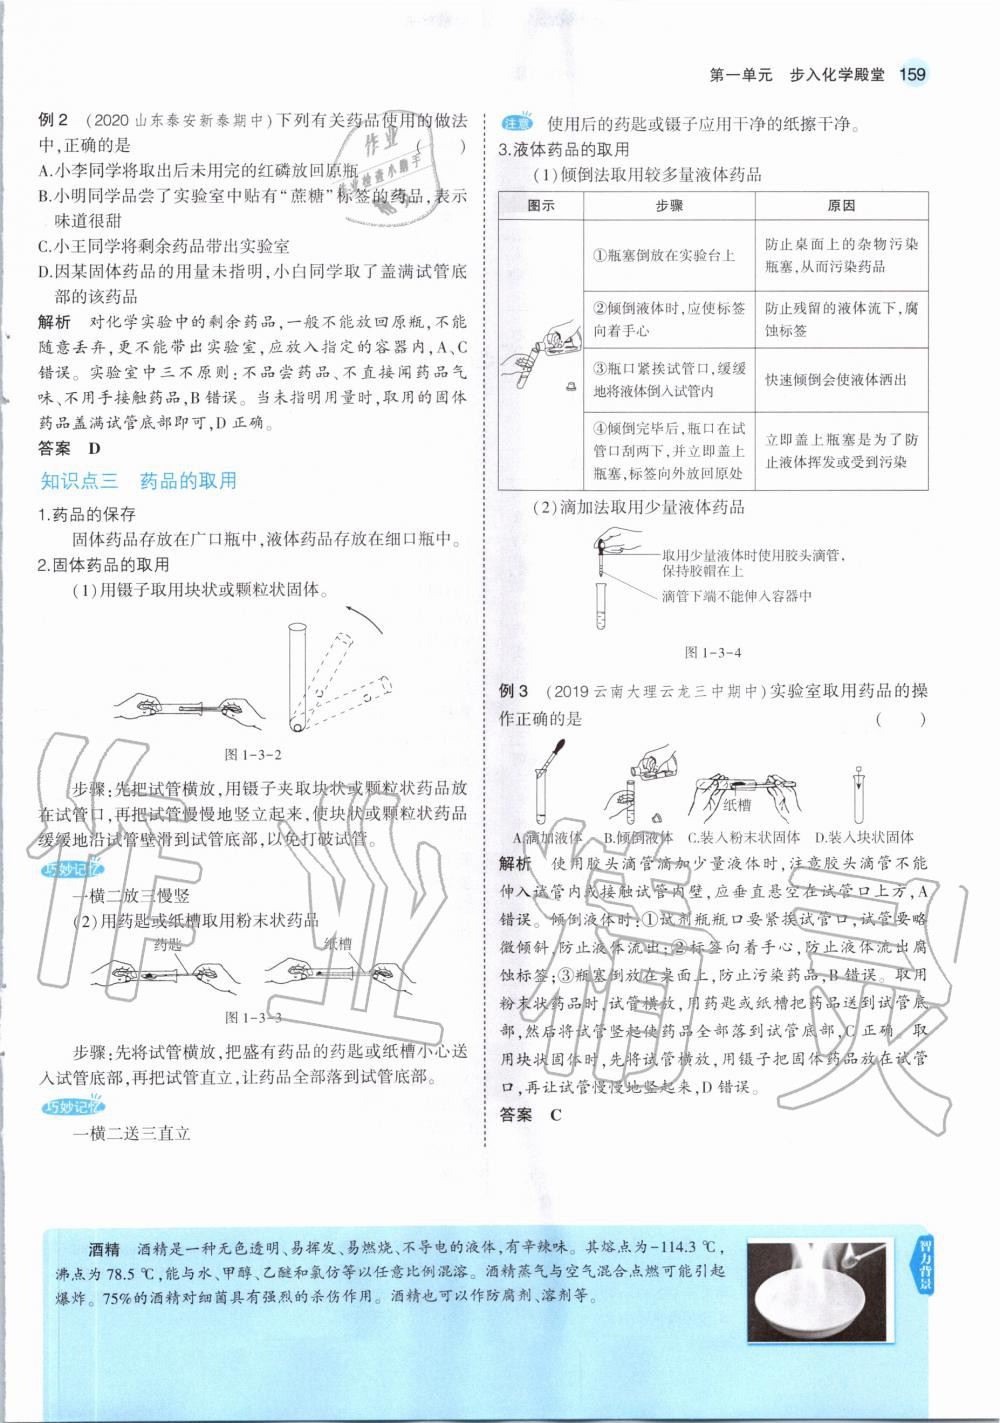 第一单元 步入化学殿堂 159
例2 (2020山东泰安新泰期中)下列有关药品使用的做法
中,正确的是 ( )
A.小李同学将取出后未用完的红磷放回原瓶
B.小明同学品尝了实验室中贴有“蔗糖”标签的药品,表示
味道很甜
C.小王同学将剩余药品带出实验室
D.因某固体药品的用量未指明,小白同学取了盖满试管底
部的该药品
解析 对化学实验中的剩余药品,一般不能放回原瓶,不能
随意丢弃,更不能带出实验室,应放入指定的容器内,A、C
错误。实验室中三不原则:不品尝药品、不直接闻药品气
味、不用手接触药品,B错误。当未指明用量时,取用的固体
药品盖满试管底部即可,D正确。
答案 D
知识点三 药品的取用
1.药品的保存
固体药品存放在广口瓶中,液体药品存放在细口瓶中。
2.固体药品的取用
(1)用镊子取用块状或颗粒状固体。
图1-3-2
步骤:先把试管横放,用镊子夹取块状或颗粒状药品放
在试管口,再把试管慢慢地竖立起来,使块状或颗粒状药品
缓缓地沿试管壁滑到试管底部,以免打破试管。
巧妙记忆
一横二放三慢竖
(2)用药匙或纸槽取用粉末状药品
药匙 纸槽
图1-3-3
步骤:先将试管横放,把盛有药品的药匙或纸槽小心送
入试管底部,再把试管直立,让药品全部落到试管底部。
巧妙记忆
一横二送三直立
注意 使用后的药匙或镊子应用干净的纸擦干净。
3.液体药品的取用
(1)倾倒法取用较多量液体药品
图示 步骤 原因
①瓶塞倒放在实验台上
防止桌面上的杂物污染
瓶塞,从而污染药品
②倾倒液体时,应使标签
向着手心
防止残留的液体流下,腐
蚀标签
③瓶口紧挨试管口,缓缓
地将液体倒入试管内
快速倾倒会使液体洒出
④倾倒完毕后,瓶口在试
管口刮两下,并立即盖上
瓶塞,标签向外放回原处
立即盖上瓶塞是为了防
止液体挥发或受到污染
(2)滴加法取用少量液体药品
取用少量液体时使用胶头滴管,
保持胶帽在上
滴管下端不能伸入容器中
图1-3-4
例3 (2019云南大理云龙三中期中)实验室取用药品的操
作正确的是 ( )
纸槽
A.滴加液体 B.倾倒液体 C.装入粉末状固体 D.装入块状固体
解析 使用胶头滴管滴加少量液体时,注意胶头滴管不能
伸入试管内或接触试管内壁,应垂直悬空在试管口上方,A
错误。倾倒液体时:①试剂瓶瓶口要紧挨试管口,试管要略
微倾斜,防止液体流出;②标签向着手心,防止液体流出腐
蚀标签;③瓶塞倒放在桌面上,防止污染药品,B错误。取用
粉末状药品时,试管横放,用药匙或纸槽把药品送到试管底
部,然后将试管竖起使药品全部落到试管底部,C正确。取
用块状固体时,先将试管横放,用镊子把固体药品放在试管
口,再让试管慢慢地竖起来,D错误。
答案 C
酒精 酒精是一种无色透明、易挥发、易燃烧、不导电的液体,有辛辣味。其熔点为-114.3 ℃,
沸点为78.5 ℃,能与水、甲醇、乙醚和氯仿等以任意比例混溶。酒精蒸气与空气混合点燃可能引起
爆炸。75%的酒精对细菌具有强烈的杀伤作用。酒精也可以作防腐剂、溶剂等。
智力背景
作业精灵
作业
作业检查小助手